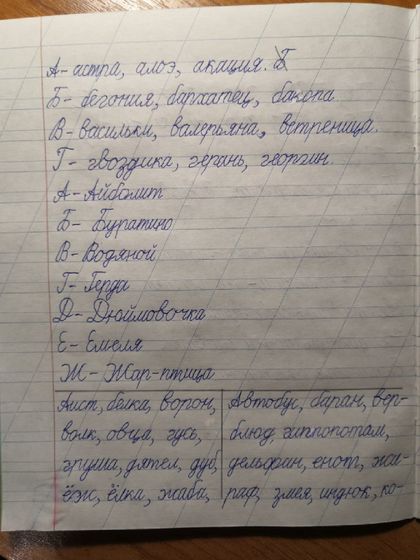 А- астра, алоэ, акация. Б
Б- бегония, бархатец, бакопа
В- васильки, валерьяна, ветреница.
Г- гвоздика, герань, георгин.
А- Айболит
Б- Буратино
В- Водяной
Г- Герда
Д- Дюймовочка
Е- Емеля
Ж- Жар-птица
Аист, белка, ворон,
волк, овца, гусь,
груша, дятел, дуб,
ёж, ёлка, жаба,
Автобус, баран, вер-
блюд, гиппопотам,
дельфин, енот, жи-
раф, змея, индюк, ко-